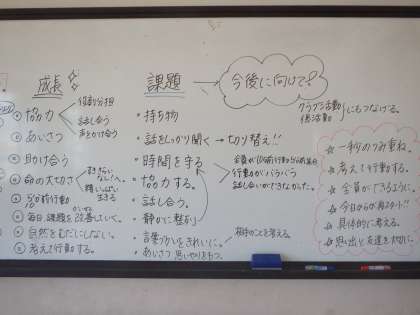 成長
協力
役割分担
話し合う
声をかけ合う
あいさつ
助け合う
命の大切さ
精いっぱい
生きる
5分前行動
10
毎日、課題を改善していく。
かいぜん
自然をむだにしない。
考えて行動する。
課題
持ち物
話をしっかり聞く → 切り替え!!
時間を守る
全員が
行動がバラバラ
話し合いができなかった。
協力する。
話し合う。
静かに整列
言葉づかいをきれいに。
相手のことを考える。
あいさつ 思いやりをもつ。
今後に向けて!
クラブ活動
係活動
にもつなげる。
☆ 一秒のつみ重ね。
☆ 考えて行動する。
☆ 全員ができるように。
☆ 今日からが再スタート!!
☆ 具体的に考える。
☆ 思い出と友達を大切に。